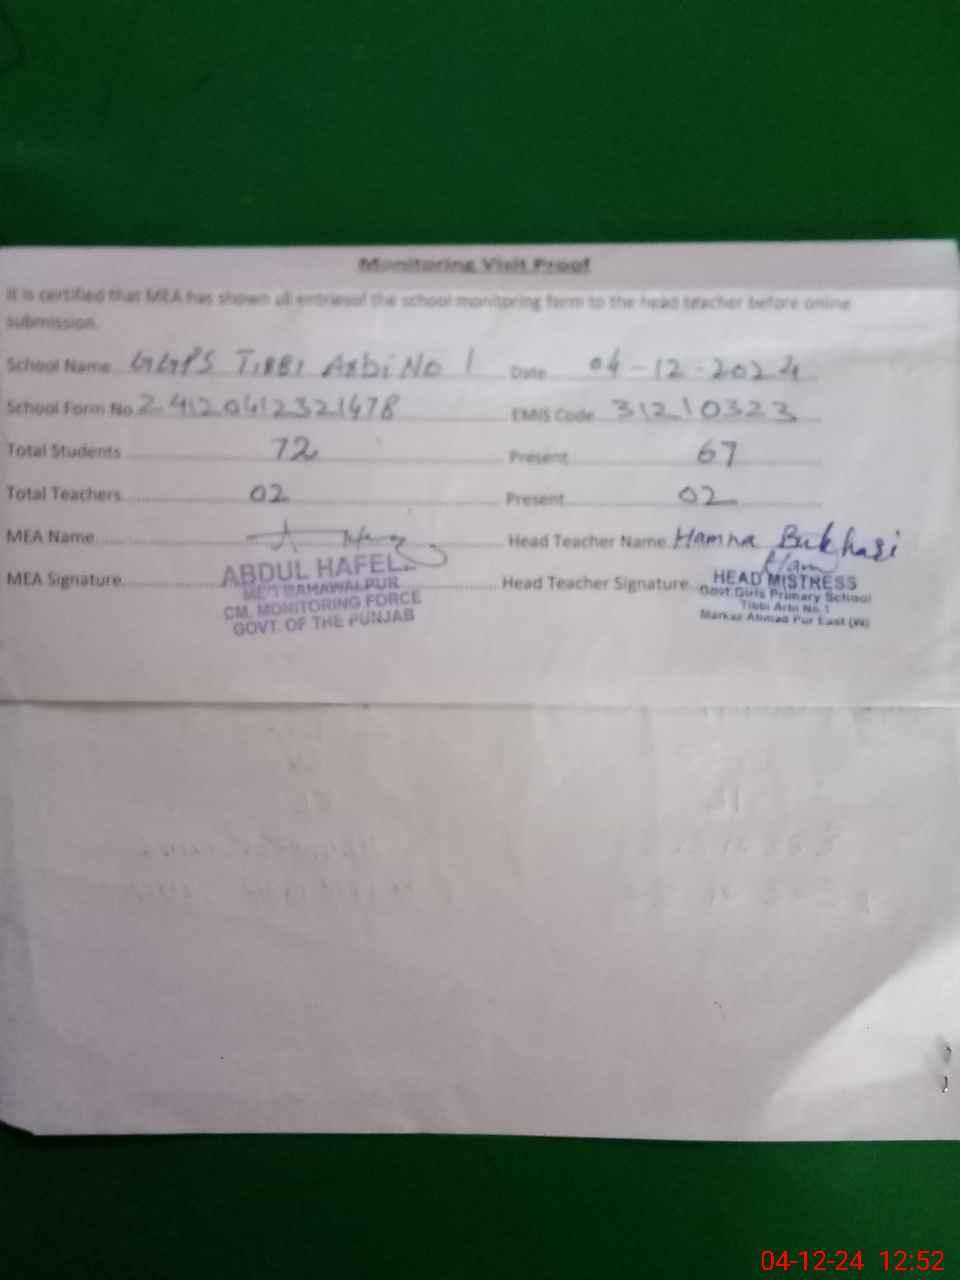 Monitoring Visit Proof
It is certified that MEA has shown all entriesof the school monitoring form to the head teacher before online
submission.
School Name GGPS TIBBI Arbi No 1 Date 04-12-2024
School Form No 24120412321478 EMIS Code 31210323
Total Students 72 Present 67
Total Teachers 02 Present 02
MEA Name Head Teacher Name Hamna Bukhari
MEA Signature Head Teacher Signature
ABDUL HAFEEZ
BAHAWALPUR
CM, MONITORING FORCE
GOVT. OF THE PUNJAB
HEAD MISTRESS
Govt Girls Primary School
Tibbi Arbi No.1
Markaz Ahmad Pur East (W)
04-12-24 12:52